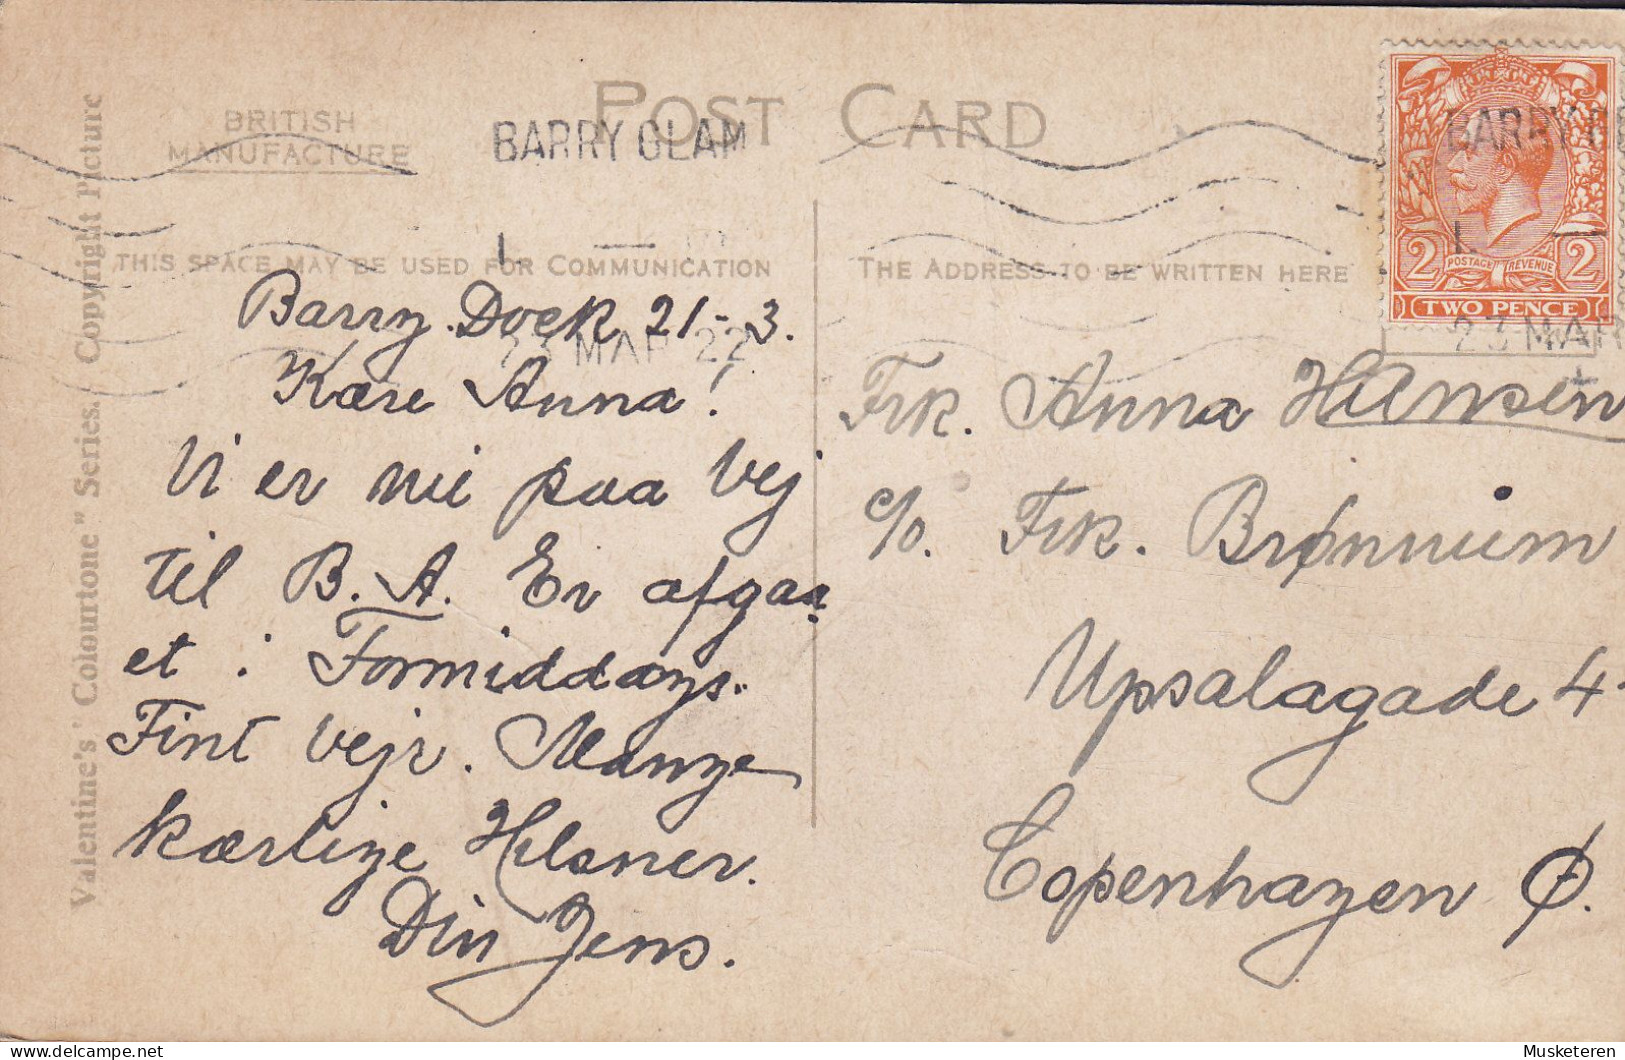 Valentine's' Colourtone" Series. Copyright Picture
BRITISH
MANUFACTURE
POST CARD
BARRY GLAM
THIS SPACE MAY BE USED FOR COMMUNICATION
23 MAR 22
Barry Dock 21-3.
Kære Anna!
Vi er nu paa Vej
til B. A. Er afgaa
et i Formiddags.
Fint Vejr. Mange
kærlige Hilsner.
Din Jens.
THE ADDRESS TO BE WRITTEN HERE
BARRY G
2 POSTAGE REVENUE 2
TWO PENCE
23 MAR
Frk. Anna Hansen
c/o. Frk. Brønnum
Upsalagade 4
Copenhagen Ø.
Musketeren
delcampe.net